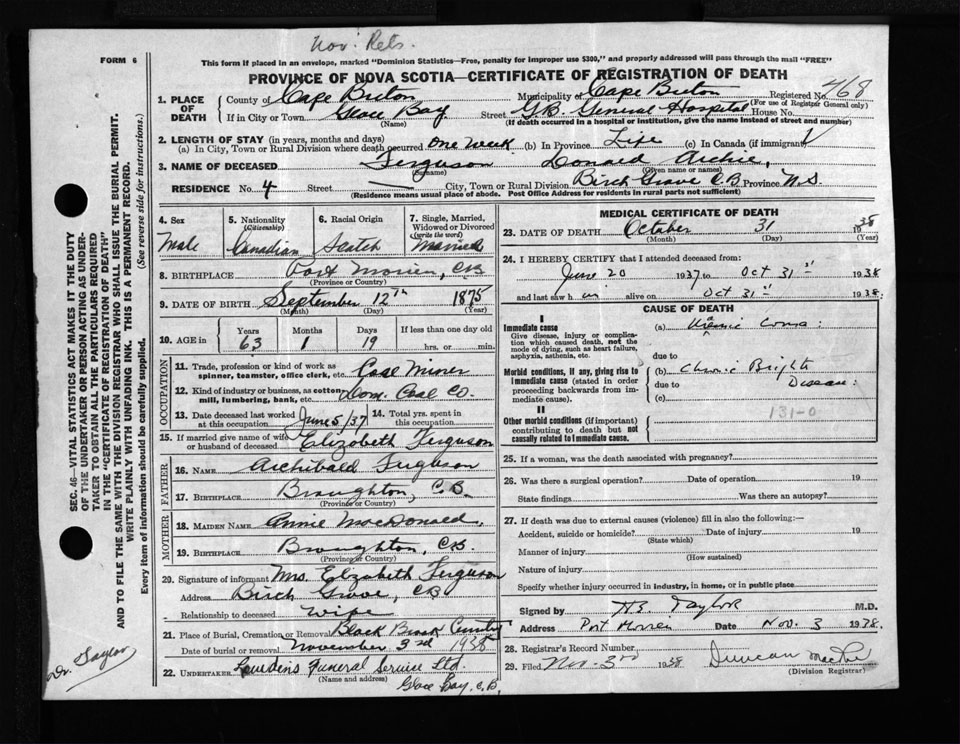 Nov. Rets.
FORM 6
This form if placed in an envelope, marked "Dominion Statistics—Free, penalty for improper use $300," and properly addressed will pass through the mail "FREE"
PROVINCE OF NOVA SCOTIA—CERTIFICATE OF REGISTRATION OF DEATH
1. PLACE OF DEATH
County of Cape Breton Municipality of Cape Breton Registered No. 468
(For use of Registrar General only)
If in City or Town Glace Bay Street G.B. General Hospital House No.
(Name) (If death occurred in a hospital or institution, give the name instead of street and number)
2. LENGTH OF STAY (in years, months and days)
(a) In City, Town or Rural Division where death occurred One Week (b) In Province Life (c) In Canada (if immigrant)
3. NAME OF DECEASED Ferguson Donald Archie,
(Surname) (Given name or names)
RESIDENCE No. 4 Street City, Town or Rural Division Birch Grove C.B Province N.S.
(Residence means usual place of abode. Post Office Address for residents in rural parts not sufficient)
4. Sex
Male
5. Nationality
(Citizenship)
Canadian
6. Racial Origin
Scotch
7. Single, Married, Widowed or Divorced
(write the word)
Married
8. BIRTHPLACE Port Morien, CB
(Province or Country)
9. DATE OF BIRTH September 12th 1875
(Month) (Day) (Year)
10. AGE in Years Months Days If less than one day old
63 1 19 hrs. or min.
OCCUPATION
11. Trade, profession or kind of work as spinner, teamster, office clerk, etc. Coal Miner
12. Kind of industry or business, as cotton mill, lumbering, bank, etc. Dom. Coal Co.
13. Date deceased last worked at this occupation June 5/37
14. Total yrs. spent in this occupation
15. If married give name of wife or husband of deceased Elizabeth Ferguson
FATHER
16. NAME Archibald Ferguson
17. BIRTHPLACE Broughton, C.B.
(Province or Country)
MOTHER
18. MAIDEN NAME Annie MacDonald,
19. BIRTHPLACE Broughton, C.B.
(Province or Country)
20. Signature of informant Mrs. Elizabeth Ferguson
Address Birch Grove, CB
Relationship to deceased wife
21. Place of Burial, Cremation or Removal Black Brook
Date of burial or removal November 3rd 1938
22. UNDERTAKER Funeral Service Ltd.
(Name and address)
Glace Bay, C.B.
MEDICAL CERTIFICATE OF DEATH
23. DATE OF DEATH October 31 1938
(Month) (Day) (Year)
24. I HEREBY CERTIFY that I attended deceased from:
June 20 1937 to Oct 31st 1938
and last saw him alive on Oct 31st 1938:
CAUSE OF DEATH
I
Immediate cause
Give disease, injury or complication which caused death, not the mode of dying, such as heart failure, asphyxia, asthenia, etc.
(a) Uremic Coma:
due to
Morbid conditions, if any, giving rise to immediate cause (stated in order proceeding backwards from immediate cause).
(b) Chronic Brights Disease:
due to
(c)
131-0
II
Other morbid conditions (if important) contributing to death but not causally related to immediate cause.
25. If a woman, was the death associated with pregnancy?
26. Was there a surgical operation? Date of operation 19
State findings Was there an autopsy?
27. If death was due to external causes (violence) fill in also the following:—
Accident, suicide or homicide? Date of injury 19
(State which)
Manner of injury
(How sustained)
Nature of injury
Specify whether injury occurred in industry, in home, or in public place
Signed by H.E. Taylor M.D.
Address Port Morien Date Nov. 3 1938.
28. Registrar's Record Number
29. Filed Nov. 3rd 1938 Duncan
(Division Registrar)
SEC. 46—VITAL STATISTICS ACT MAKES IT THE DUTY
OF THE UNDERTAKER OR PERSON ACTING AS UNDERTAKER TO OBTAIN ALL THE PARTICULARS REQUIRED
IN THE "CERTIFICATE OF REGISTRATION OF DEATH"
AND TO FILE THE SAME WITH THE DIVISION REGISTRAR WHO SHALL ISSUE THE BURIAL PERMIT.
WRITE PLAINLY WITH UNFADING INK. THIS IS A PERMANENT RECORD.
Every item of information should be carefully supplied. (See reverse side for instructions.)
Dr. Taylor